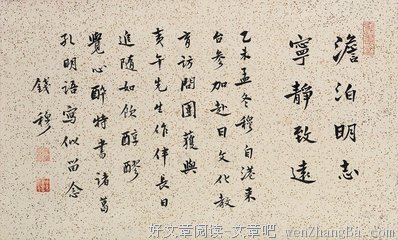 澹泊明志
寧靜致遠
乙未孟冬穆自港來
台參加赴日文化教
育訪問團獲與
亥午先生作伴長日
追隨如飲醇醪
覺心醉特書諸葛
孔明語寫似留念
錢穆
好文章阅读-文章吧 wenZhangBa.Com